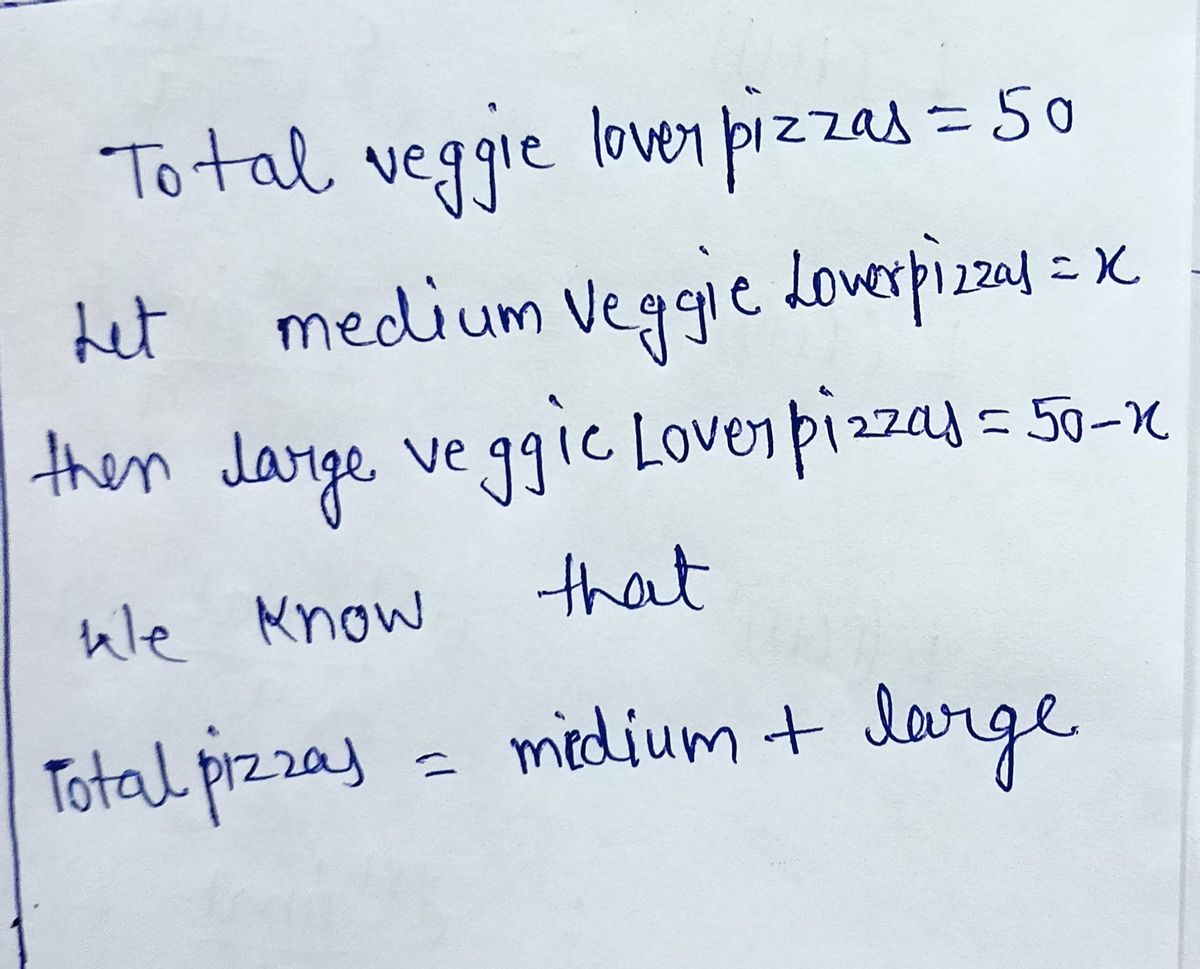 Total veggie lover pizzas = 50
Let medium Veggie Lover pizzas = x
then large veggie Lover pizzas = 50-x
We know that
Total pizzas = medium + large